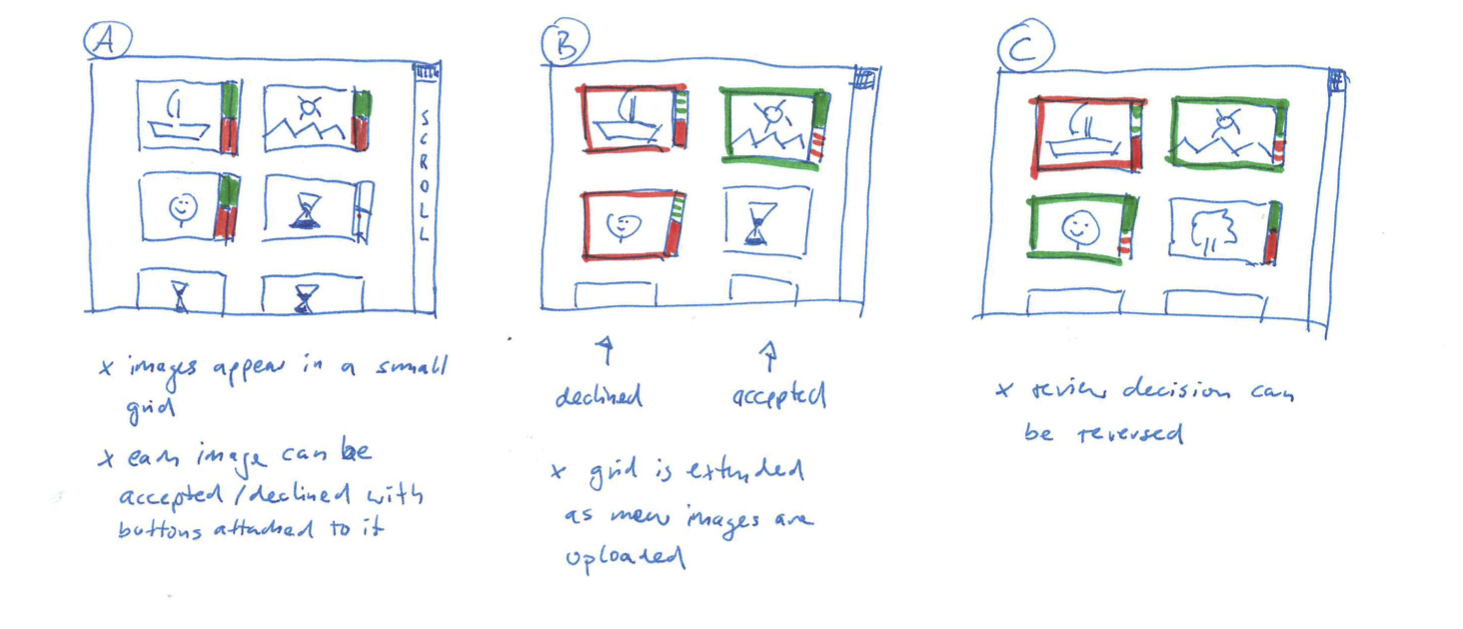 A
SCROLL
x images appear in a small
grid
x each image can be
accepted/declined with
buttons attached to it
B
declined
accepted
x grid is extended
as new images are
uploaded
C
x review decision can
be reversed